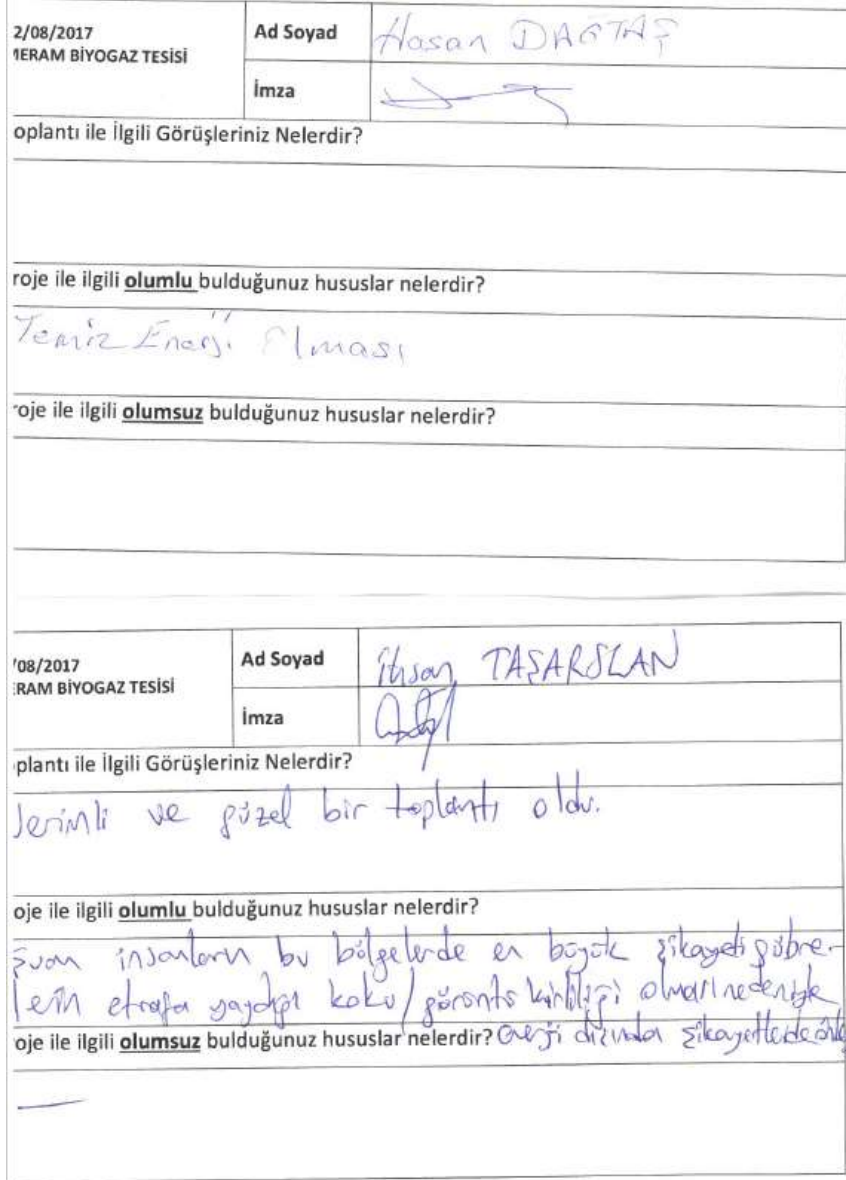 2/08/2017
MERAM BİYOGAZ TESİSİ
Ad Soyad
Hasan DAĞTAŞ
İmza
oplantı ile İlgili Görüşleriniz Nelerdir?
roje ile ilgili olumlu bulduğunuz hususlar nelerdir?
Temiz Enerji Olması
roje ile ilgili olumsuz bulduğunuz hususlar nelerdir?
/08/2017
ERAM BİYOGAZ TESİSİ
Ad Soyad
İhsan TAŞARSLAN
İmza
plantı ile İlgili Görüşleriniz Nelerdir?
Verimli ve güzel bir toplantı oldu.
oje ile ilgili olumlu bulduğunuz hususlar nelerdir?
Şuan insanların bu bölgelerde en büyük şikayeti gübre-
lerin etrafa yaydığı koku/görüntü kirliliği olması nedeniyle
oje ile ilgili olumsuz bulduğunuz hususlar nelerdir? enerji dışında şikayetlerde